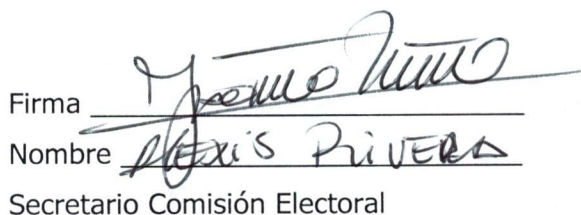 Firma
Nombre Alexis Rivera
Secretario Comisión Electoral